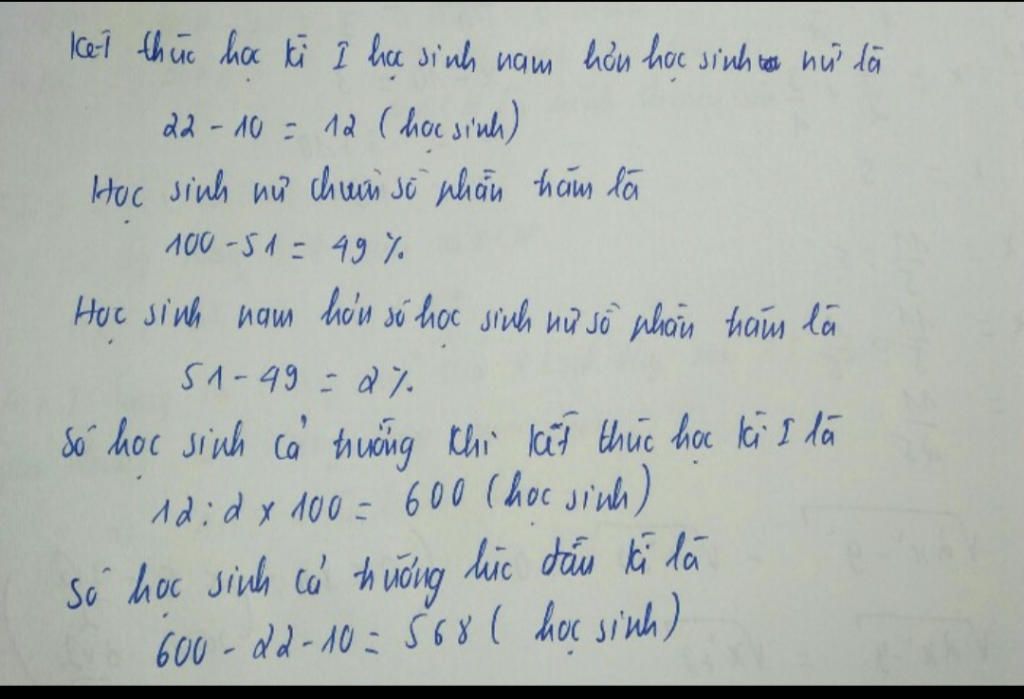 Kết thúc học kì I học sinh nam hơn học sinh nữ là
22 - 10 = 12 (học sinh)
Học sinh nữ chiếm số phần trăm là
100 - 51 = 49 %
Học sinh nam hơn số học sinh nữ số phần trăm là
51 - 49 = 2 %
Số học sinh cả trường khi kết thúc học kì I là
12 : 2 x 100 = 600 (học sinh)
Số học sinh cả trường lúc đầu kì là
600 - 22 - 10 = 568 ( học sinh)